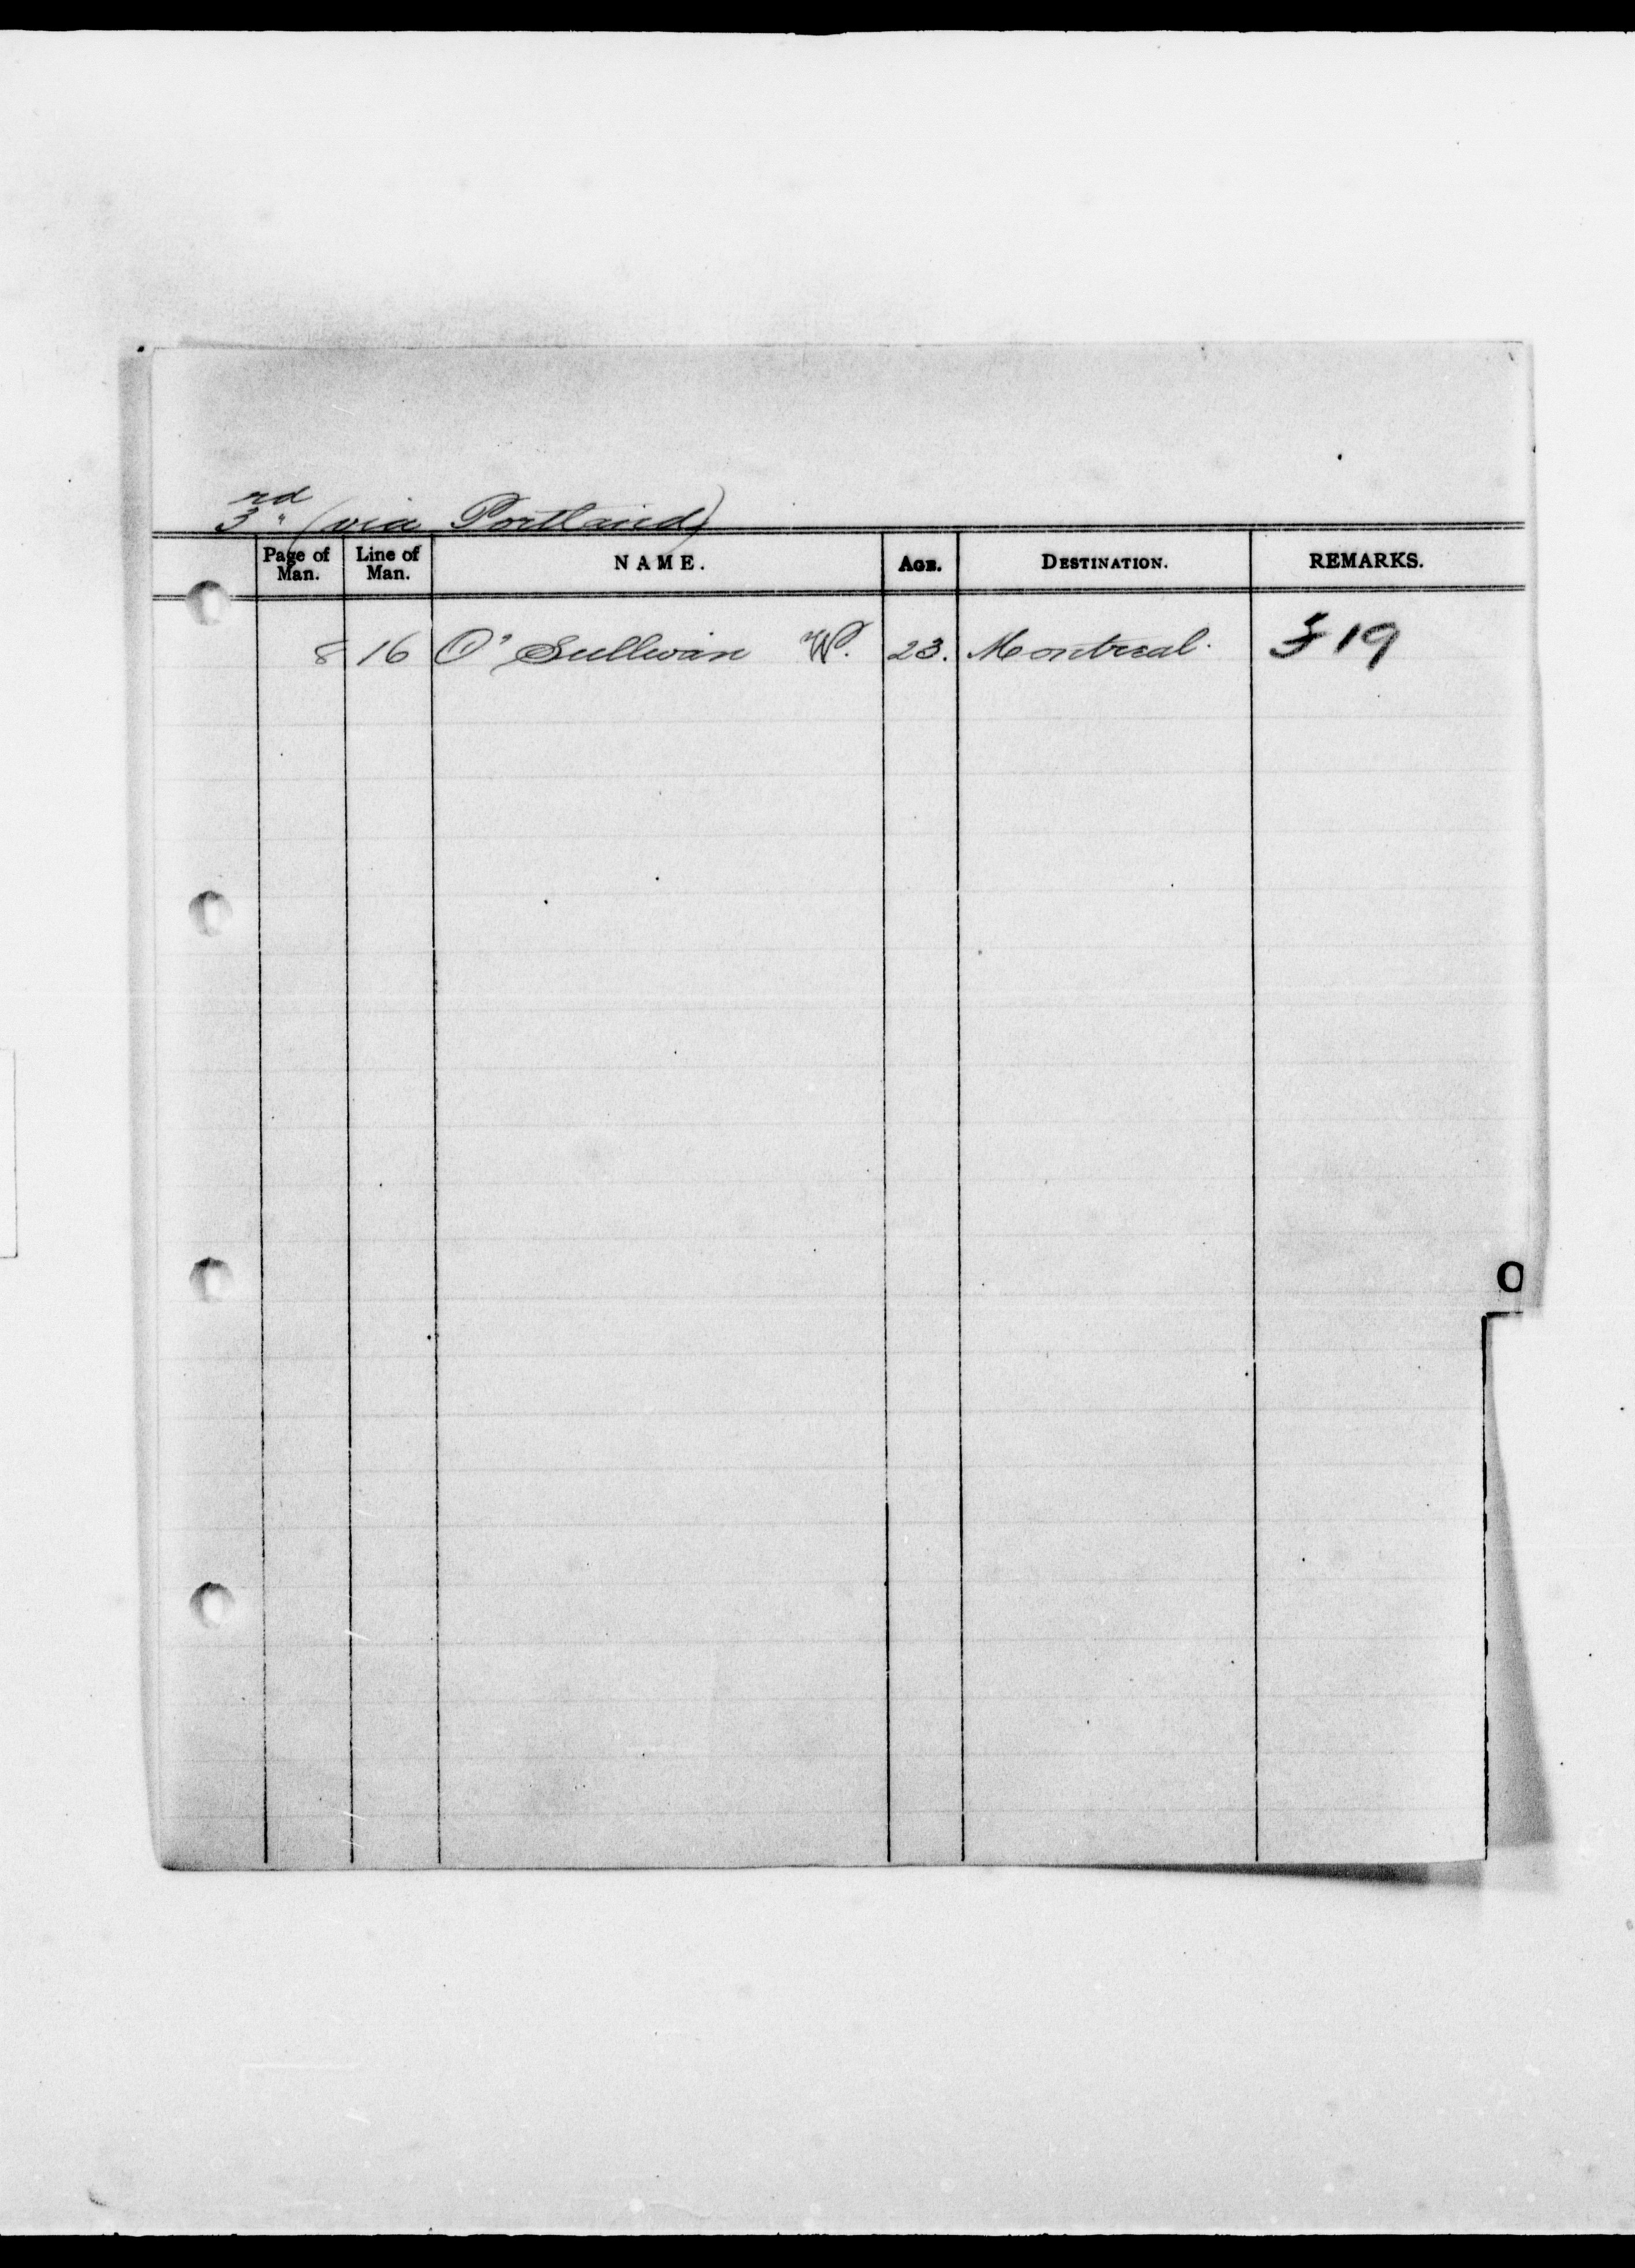 3rd (via Portland)
Page of Man. Line of Man. NAME. AGE. DESTINATION. REMARKS.
8 16 O'Sullivan W. 23. Montreal. 19
O